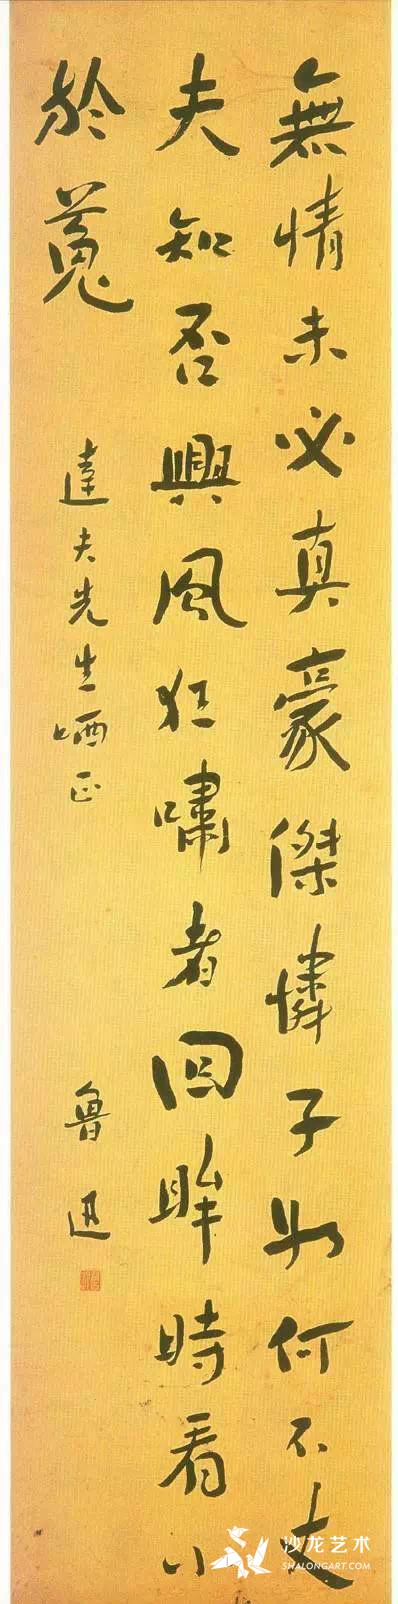 無情未必真豪傑憐子如何不丈
夫知否興風狂嘯者回眸時看小
於菟
達夫先生哂正
魯迅
沙龙艺术
SHALONGART.COM